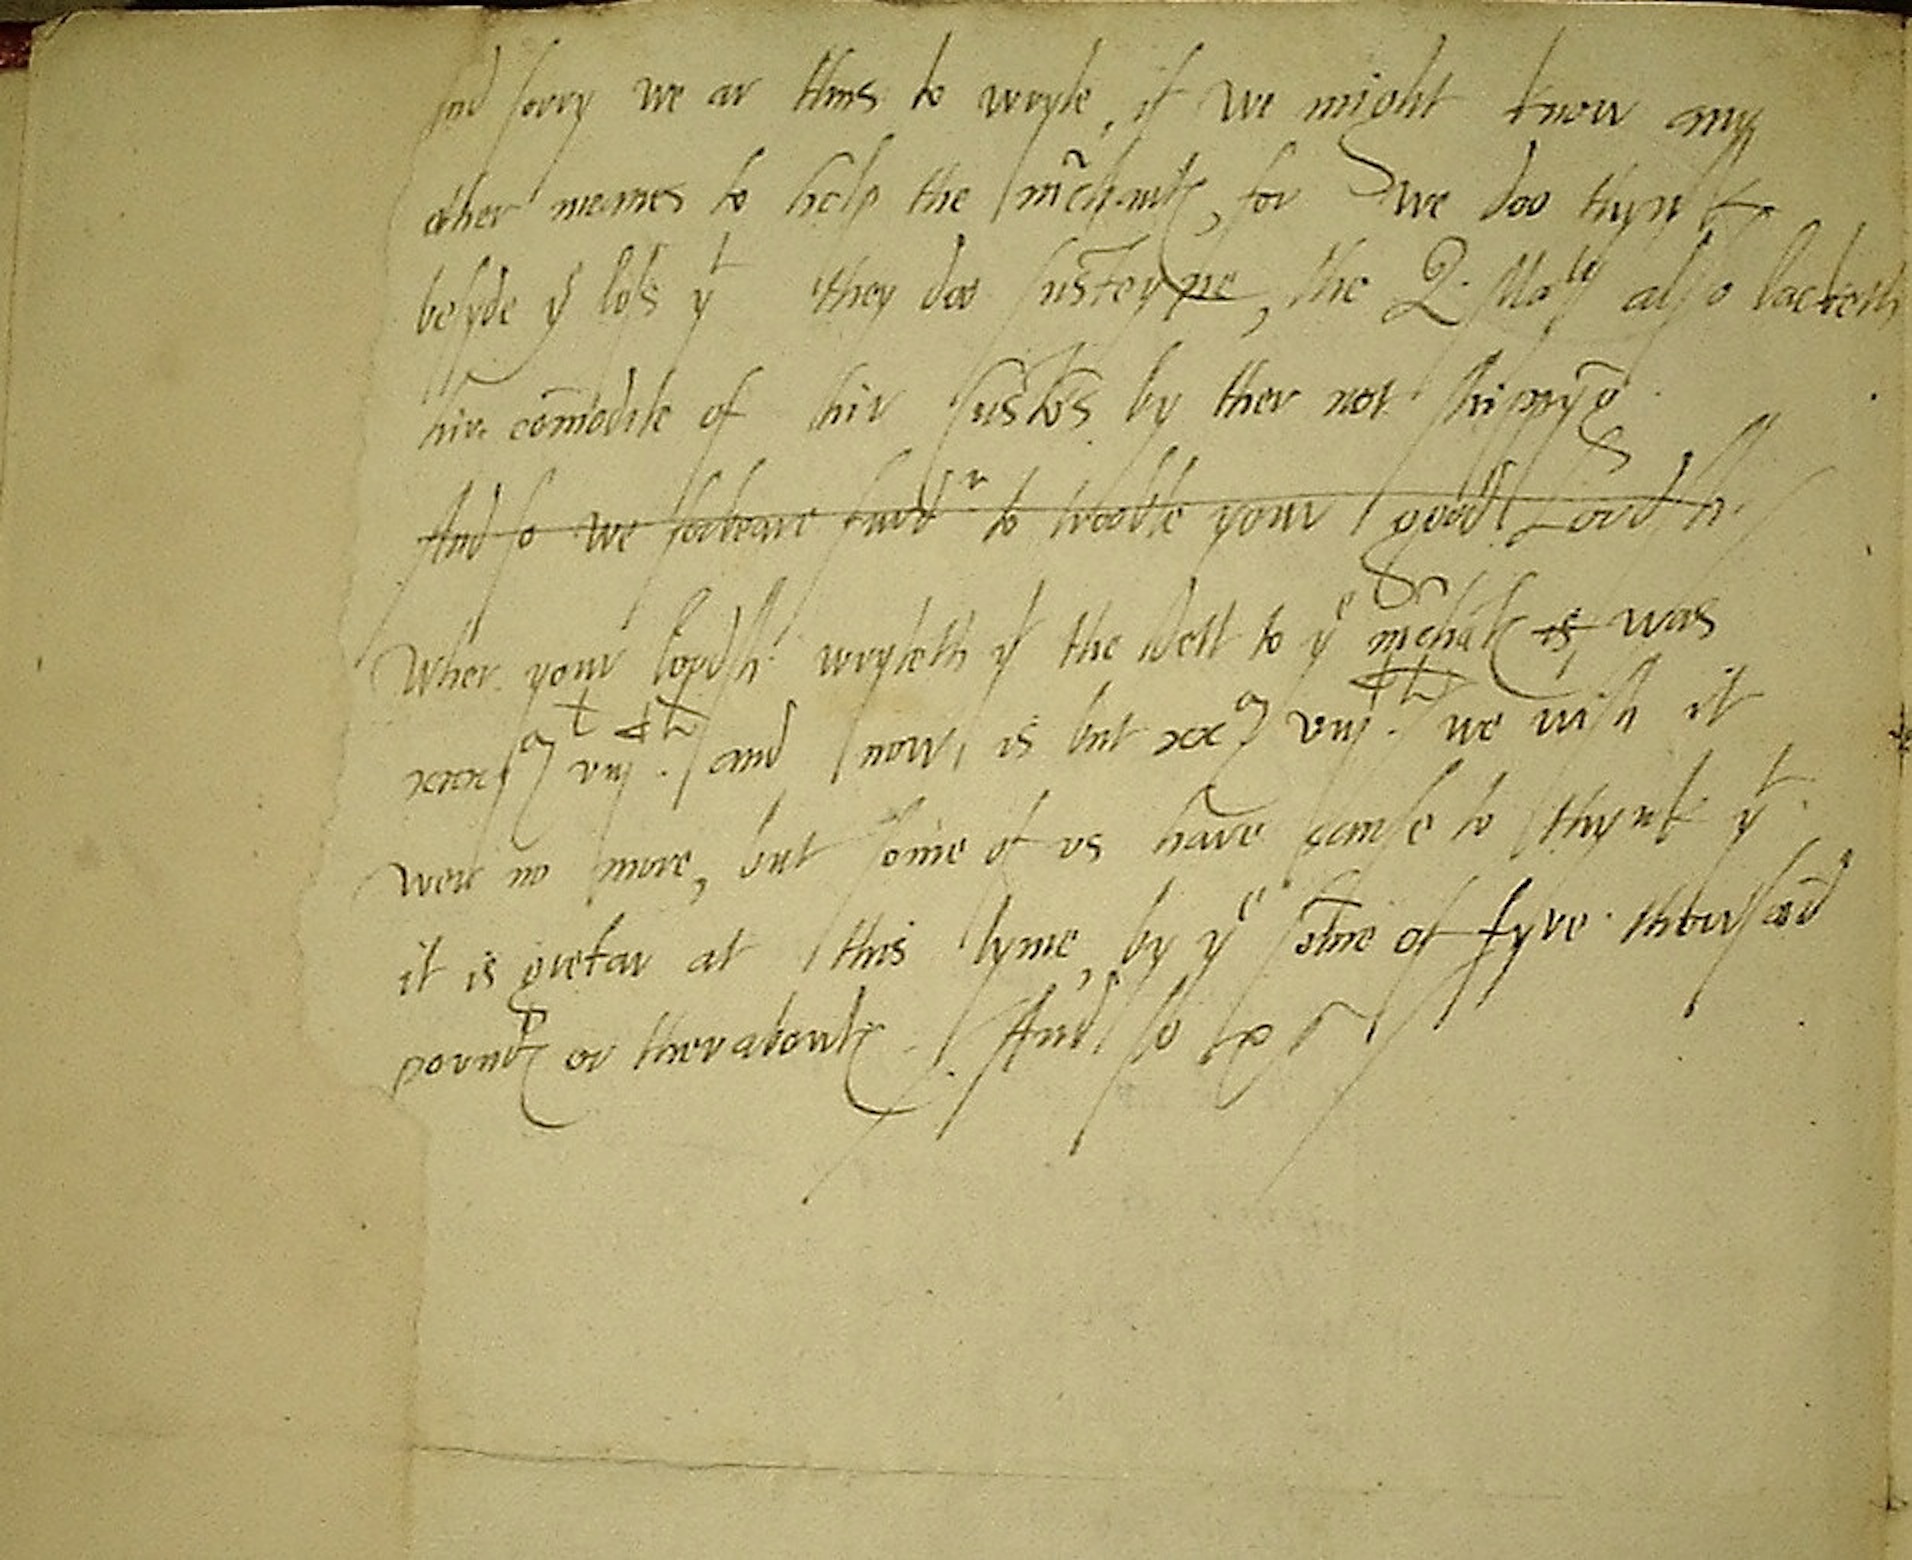 And sorry we ar thus to wryte, if we might know any
other meanes to help the m̃chantꝭ, for we doo thynk
besyde yͤ loss yͭ they doo susteyne, the Q. Maᵗʸ also lacketh
hir cõmodite of hir customs by ther not shippyg̃
And so we forbeare furdʳ to trooble your good Lordsh.
Wher your Lordsh. wryteth yͭ the dett to yͤ m̃chãtꝭ is was
viijᵗ . and now is but viij . we wish it
wer no more, but some of us have cause to thynk yͭ
it is gretar at this tyme, by yͤ some of fyve thousãd
poundꝭ or theraboutꝭ . And so